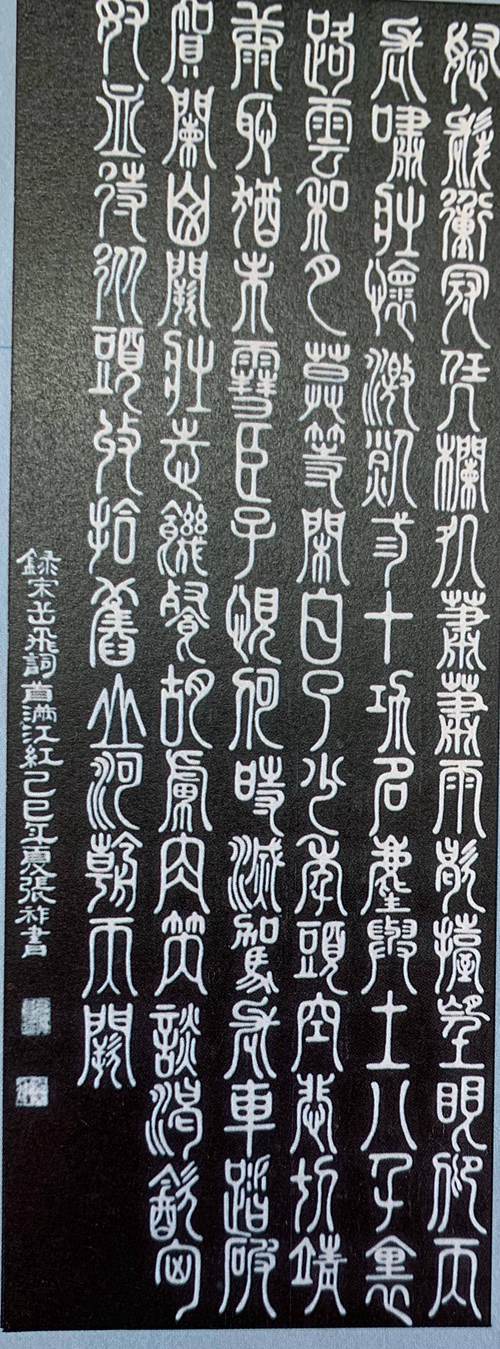 怒髮衝冠凭欄処蕭蕭雨歇擡望眼仰天
長嘯壯懷激烈三十功名塵與土八千里
路雲和月莫等閑白了少年頭空悲切靖
康恥猶未雪臣子恨何時滅駕長車踏破
賀蘭山闕壯志饑餐胡虜肉笑談渴飲匈
奴血待從頭收拾舊山河朝天闕
録宋岳飛詞首滿江紅己巳年夏張祚書